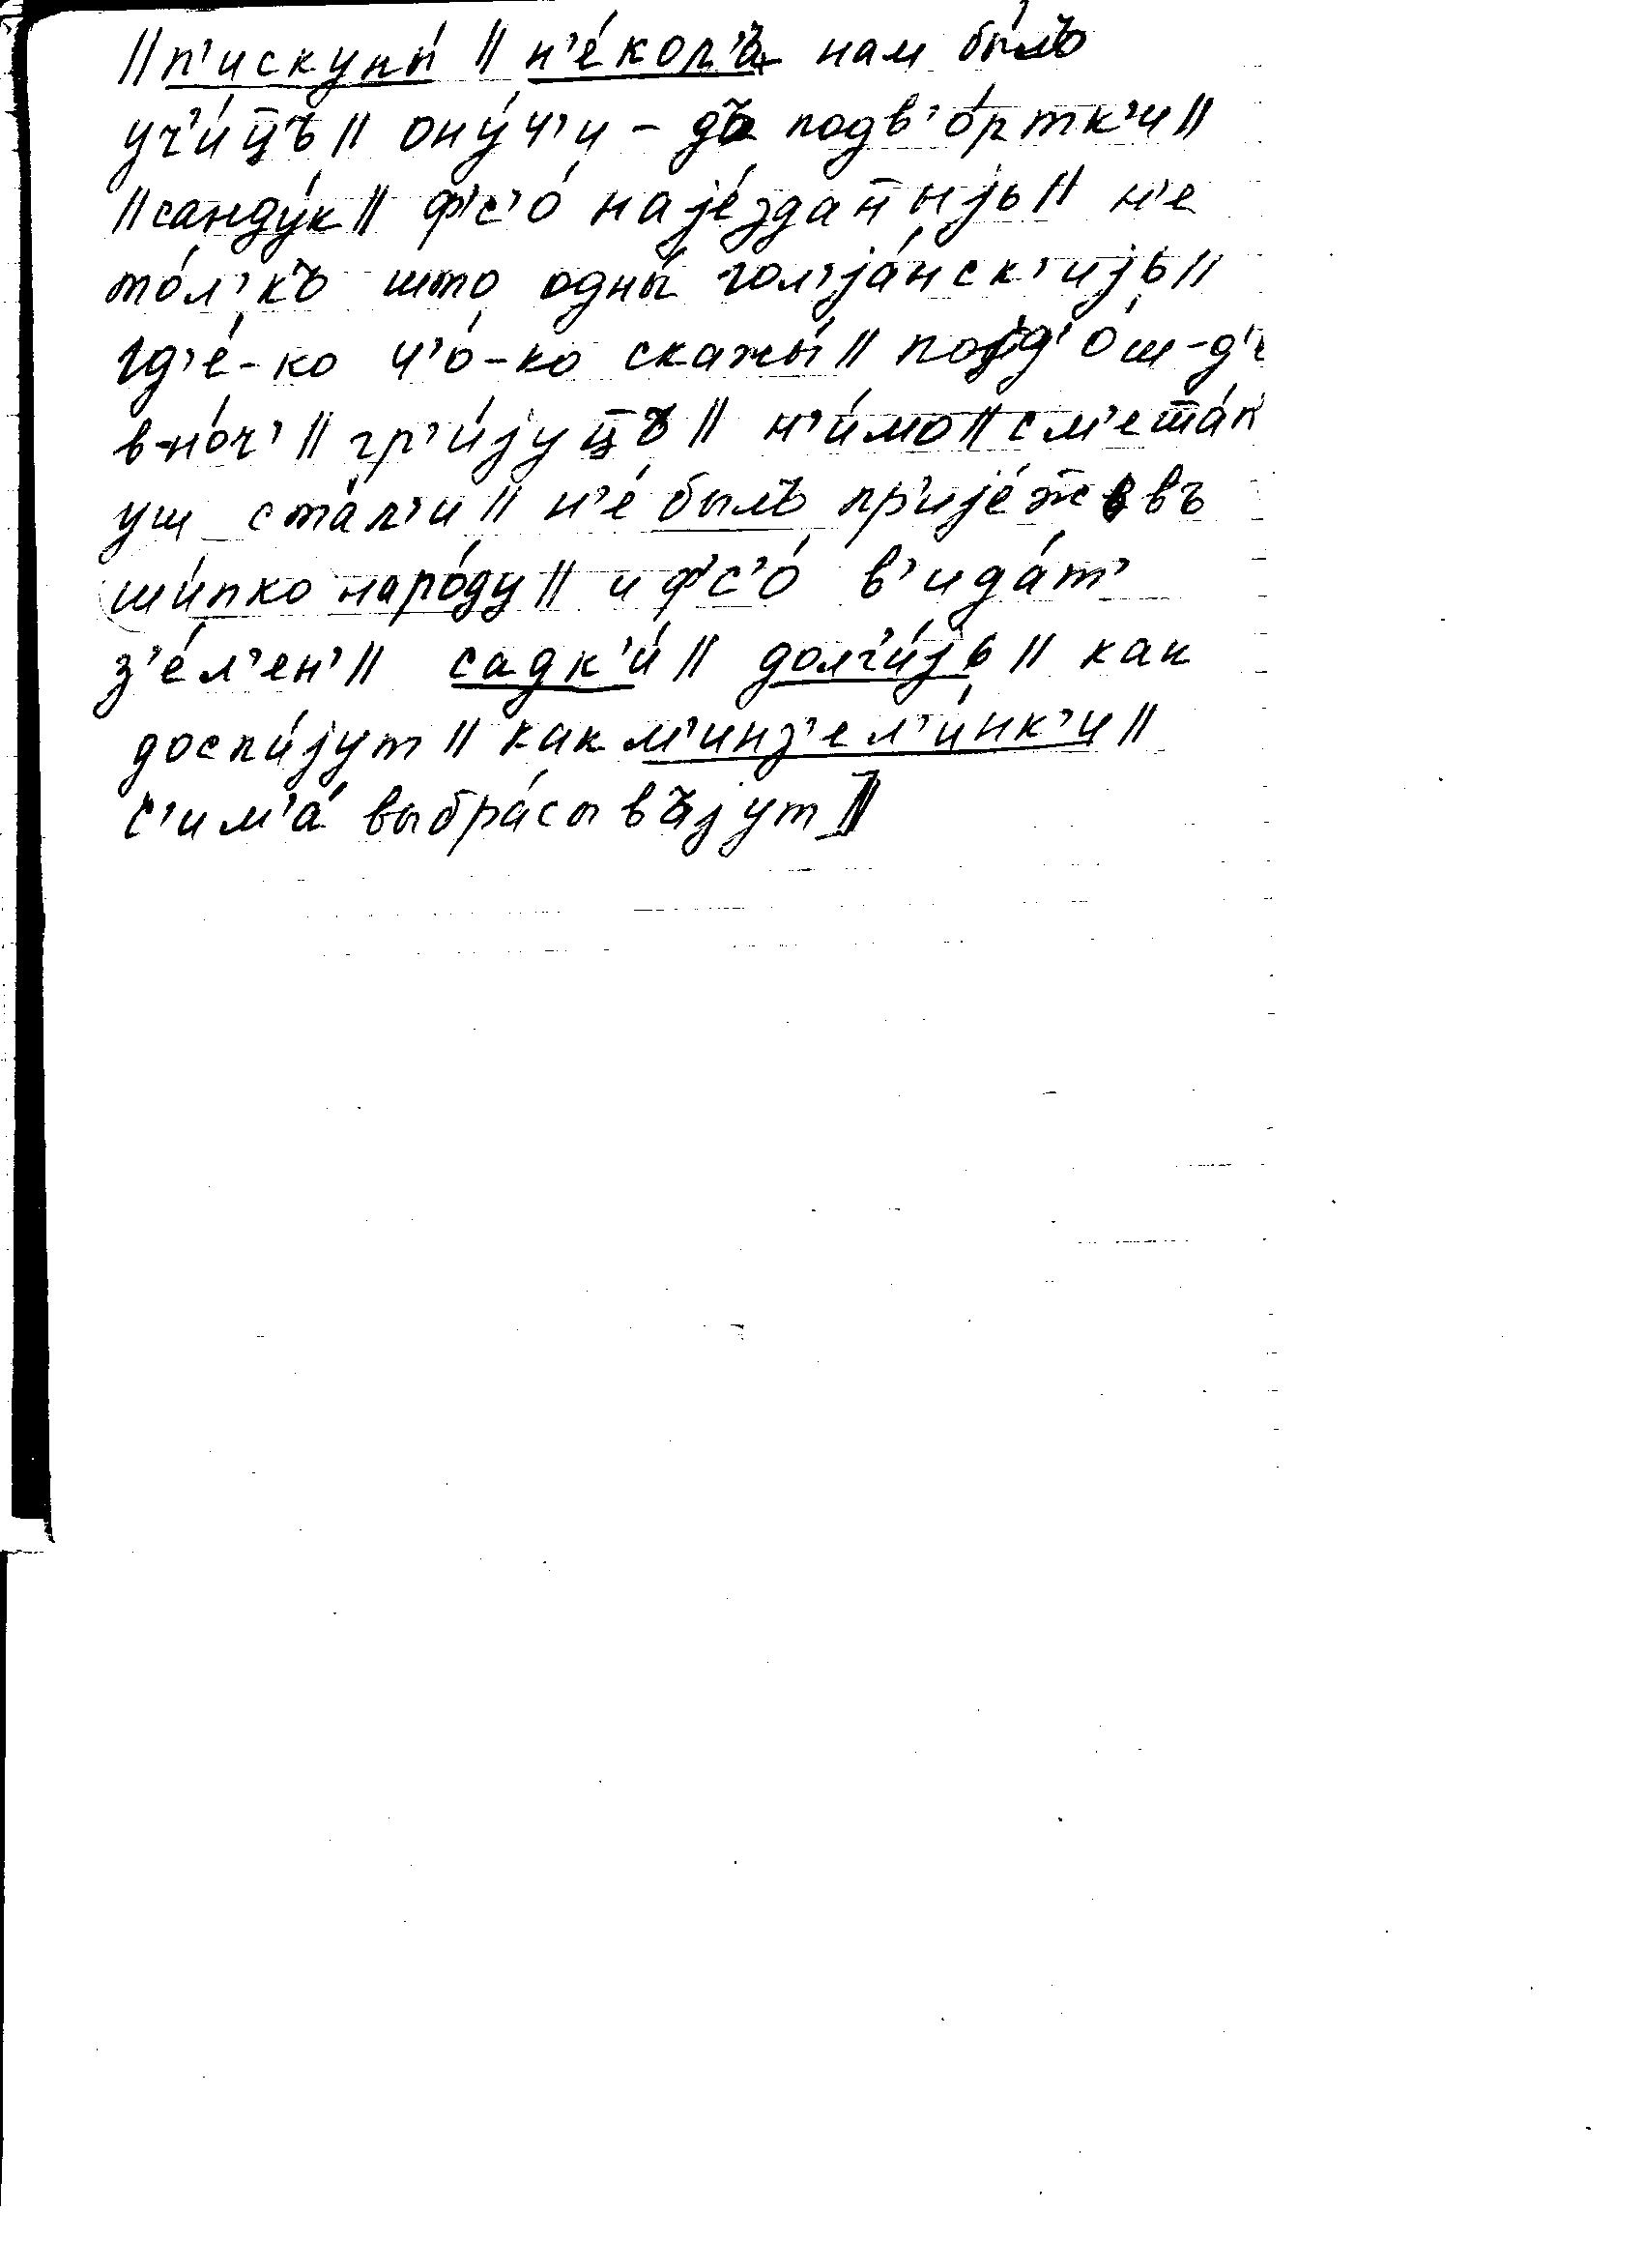 // п'искуны́ // н'е́кол'ъ нам бы́лъ
уч'и́ц̄ъ // ону́ч'и – дъ подв'о́ртк'и //
// санду́к // ф'с'о́ најéздан̄ыјь // н'е
то́л'къ што одны́ гол'јáнск'ијь //
гд'е́-ко ч'о́-ко скажы́ // појд'о́ш-д'е
в-но́ч' // гр'и́јуц̄ъ // н'и́мо // см'ета́н
уш ста́л'и // н'е́ былъ пр'ијéж̄ьвъ
ши́пко наро́ду // и ф'с'о́ в'ида́т'
з'е́л'ен' // садк'и́ // долг'и́јь // как
доспи́јут // как м'инз'ел'и́нк'и //
с'им'а́ выбра́сывъјут //